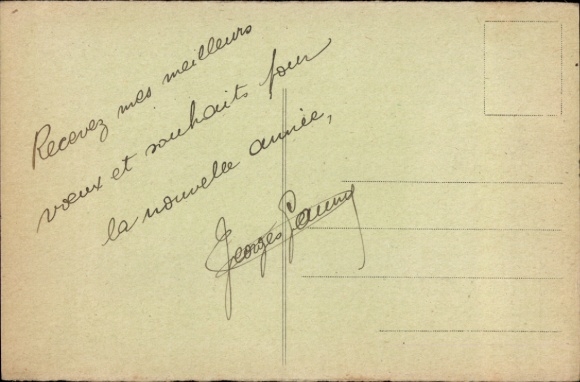 Recevez mes meilleurs
vœux et souhaits pour
la nouvelle année,
Georges